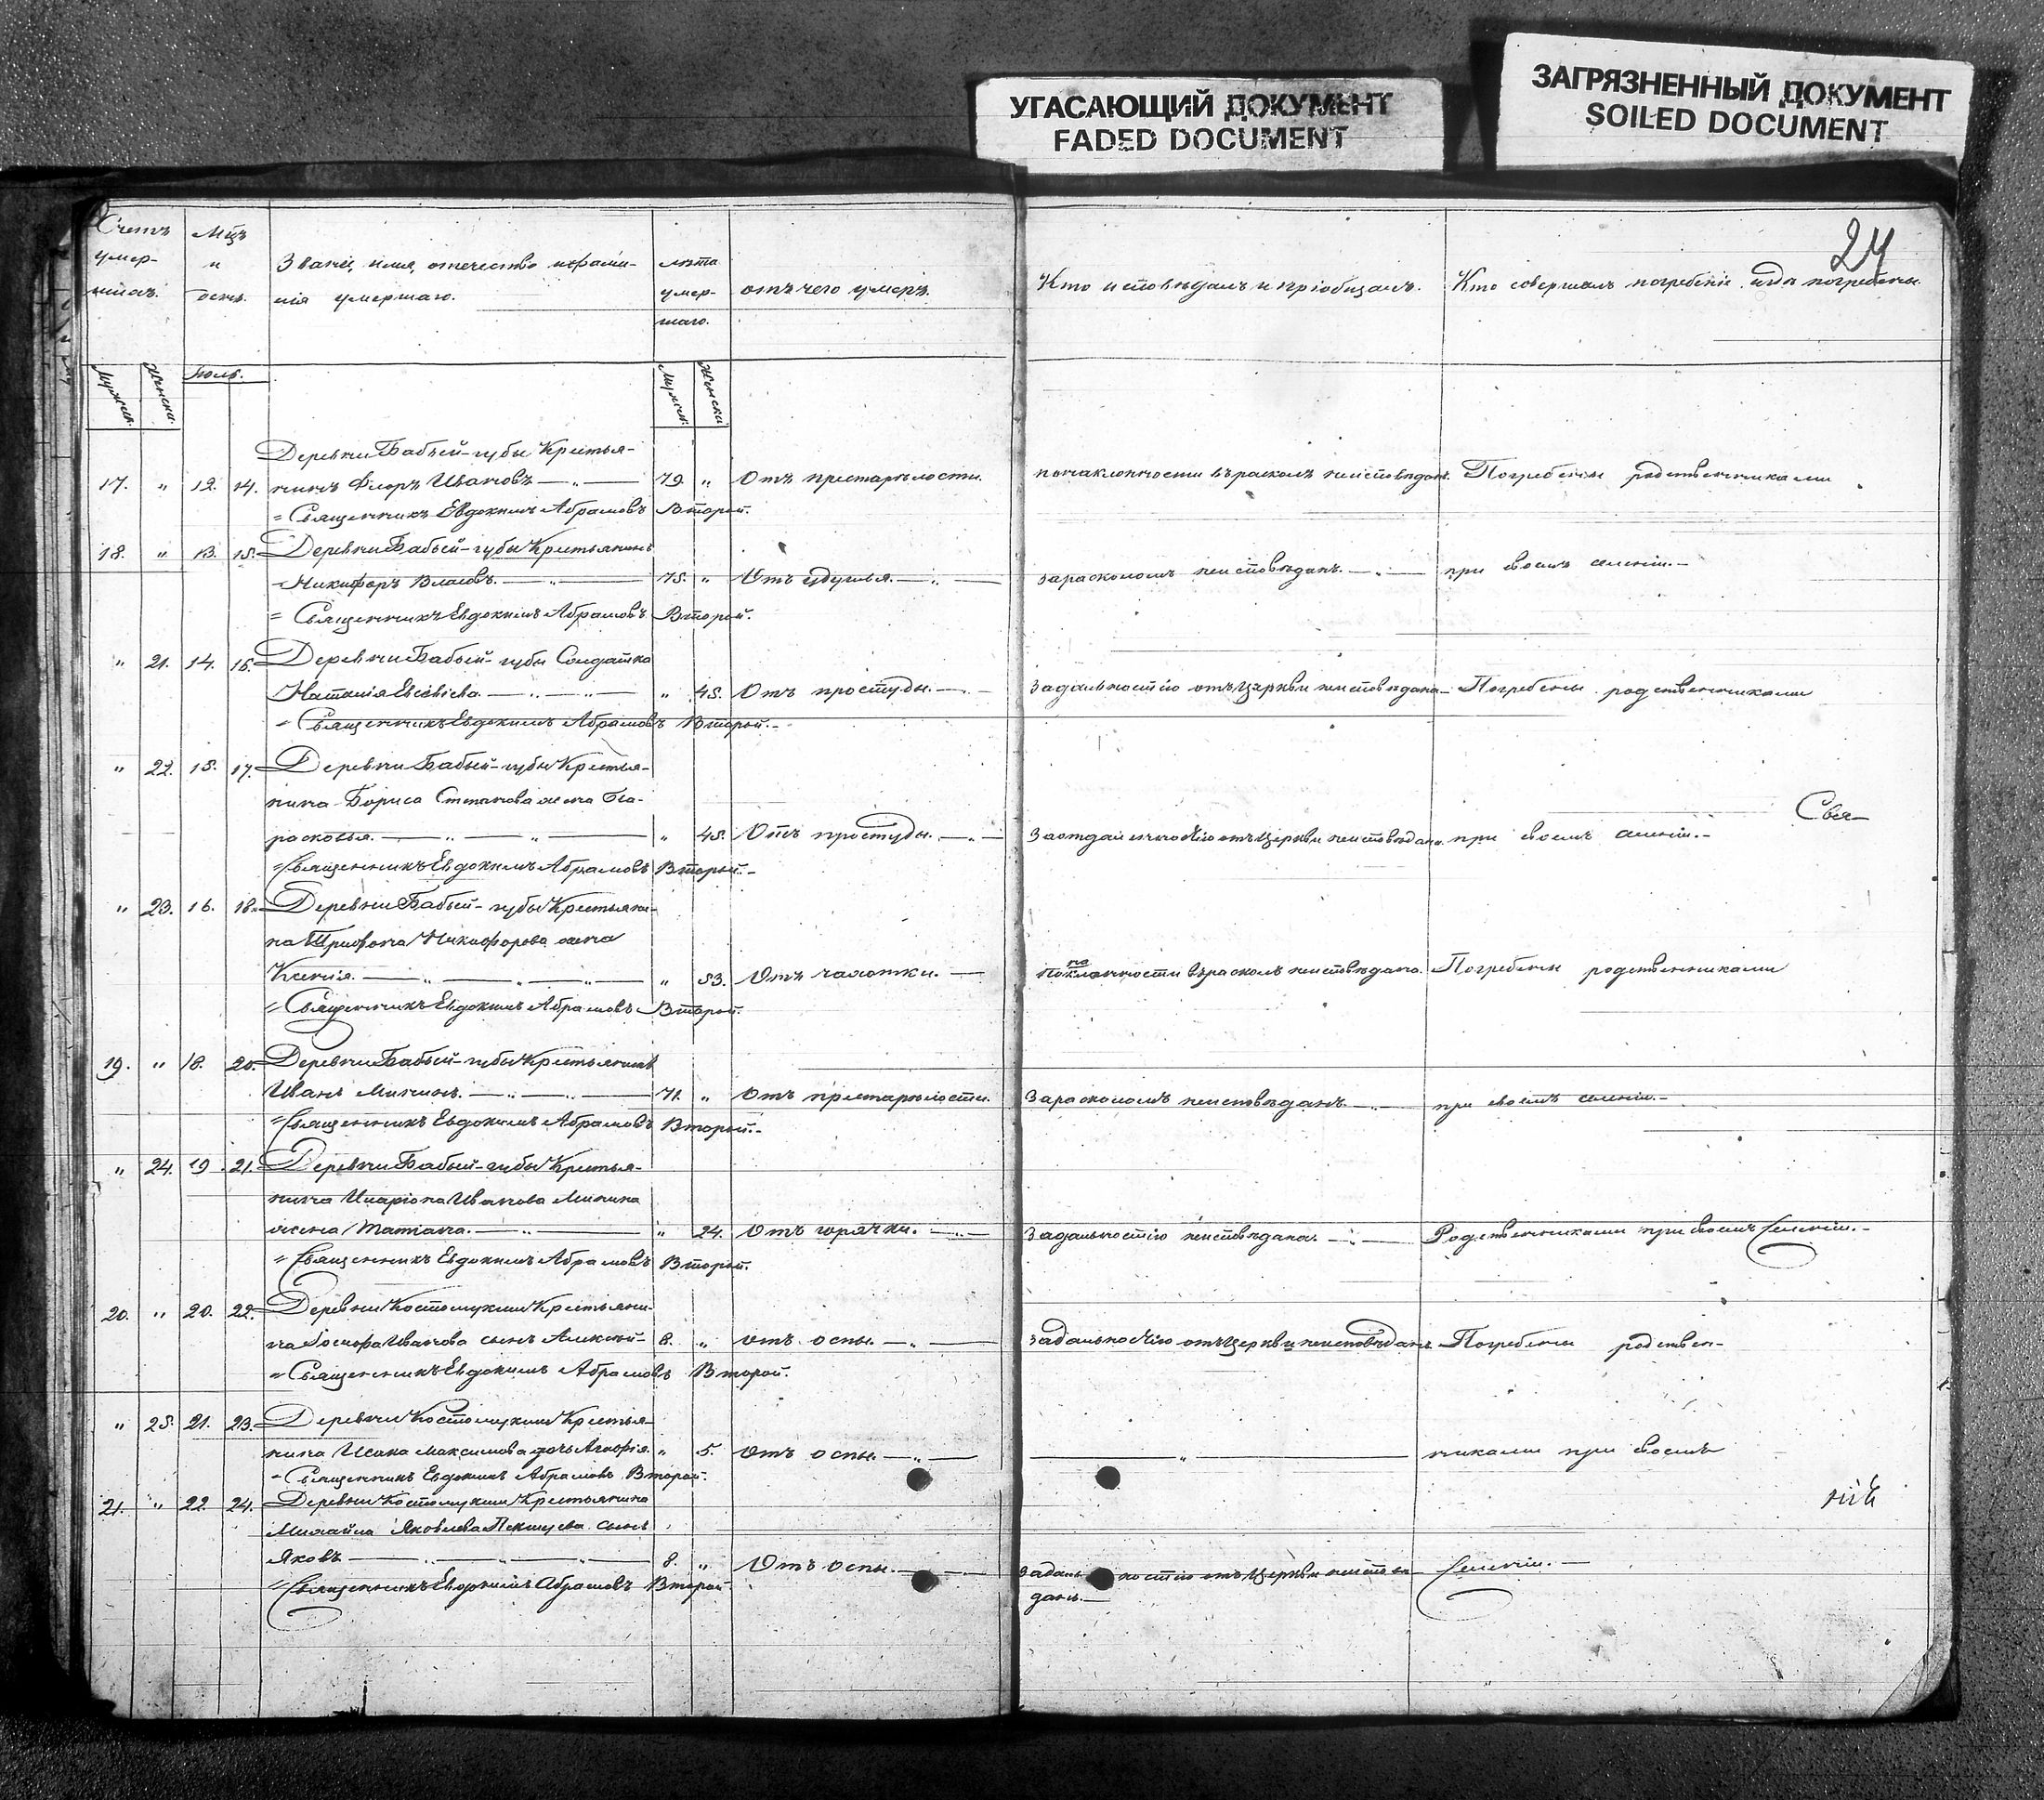 УГАСАЮЩИЙ ДОКУМЕНТ
FADED DOCUMENT
ЗАГРЯЗНЕННЫЙ ДОКУМЕНТ
SOILED DOCUMENT
24
Счетъ умер-шихъ.
Мцъ и день.
Званіе, имя, отечество и фами-
лія умершаго.
лѣта умер-шаго.
отъ чего умеръ.
Кто исповѣдалъ и пріобщалъ.
Кто совершалъ погребеніе и гдѣ погребены
Мужеска. Женска. Іюль. Мужеск. Женска.
Деревни Бабьей-губы Крестья-
17. " 12. 14. нинъ Флоръ Ивановъ 79. " Отъ престарѣлости. по наклонности въ расколъ неисповѣданъ. Погребены родственниками
Священникъ Евдокимъ Абрамовъ Второй.
18. " 13. 15. Деревни Бабьей-губы Крестьянинъ
Никифоръ Власовъ. 75. " Отъ удушья. за расколомъ неисповѣданъ. при своемъ селеніи.
Священникъ Евдокимъ Абрамовъ Второй.
" 21. 14. 16. Деревни Бабьей-губы Солдатка
Наталія Евсевіева. " 45. Отъ простуды. За дальностію отъ Церкви неисповѣдана Погребены родственниками
Священникъ Евдокимъ Абрамовъ Второй.
" 22. 15. 17. Деревни Бабьей-губы Крестья-
нина Бориса Степанова жена Па-
Свя-
расковья. " 45. Отъ простуды. За отдаленностію отъ Церкви неисповѣдана. при своемъ селеніи.
Священникъ Евдокимъ Абрамовъ Второй.
" 23. 16. 18. Деревни Бабьей-губы Крестьяни-
на Трифона Никифорова жена
Ксенія. " 53. Отъ чахотки. По наклонности въ расколъ неисповѣдана. Погребены родственниками
Священникъ Евдокимъ Абрамовъ Второй.
19. " 18. 20. Деревни Бабьей-губы Крестьянинъ
Иванъ Мининъ. 71. " Отъ престарѣлости. За расколомъ неисповѣданъ при своемъ селеніи.
Священникъ Евдокимъ Абрамовъ Второй.
" 24. 19. 21. Деревни Бабьей-губы Крестья-
нина Иларіона Иванова Минина
жена Татіана. " 24. Отъ горячки. За дальностію неисповѣдана. Родственниками при своемъ селеніи.
Священникъ Евдокимъ Абрамовъ Второй.
20. " 20. 22. Деревни Костомукши Крестьяни-
на Іосифа Иванова сынъ Алексѣй 8. " отъ оспы. За дальностію отъ Церкви неисповѣданъ Погребены родствен-
Священникъ Евдокимъ Абрамовъ Второй.
" 25. 21. 23. Деревни Костомукши Крестья-
нина Исака Максимова дочь " 5. Отъ оспы. " никами при своемъ
Священникъ Евдокимъ Абрамовъ Второй.
21. " 22. 24. Деревни Костомукши Крестьянина
Михайла Яковлева сынъ
Яковъ 8. " Отъ оспы. За дальностію отъ Церкви неисповѣ- селеніи.
Священникъ Евдокимъ Абрамовъ Второй данъ.